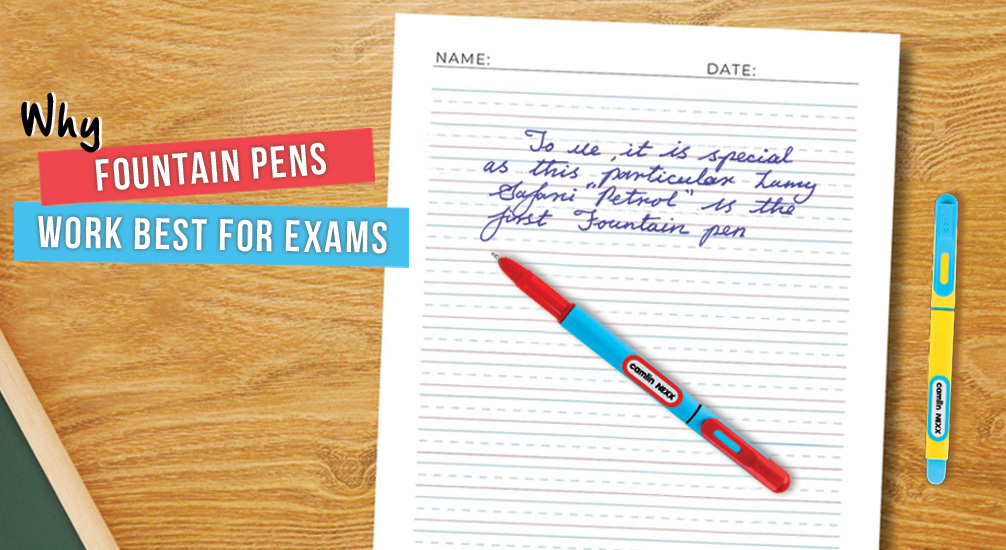 Why
FOUNTAIN PENS
WORK BEST FOR EXAMS
NAME:
DATE:
To me, it is special
as this particular Lamy
Safari "Petrol" is the
first Fountain pen
camlin NIXX
camlin NIXX